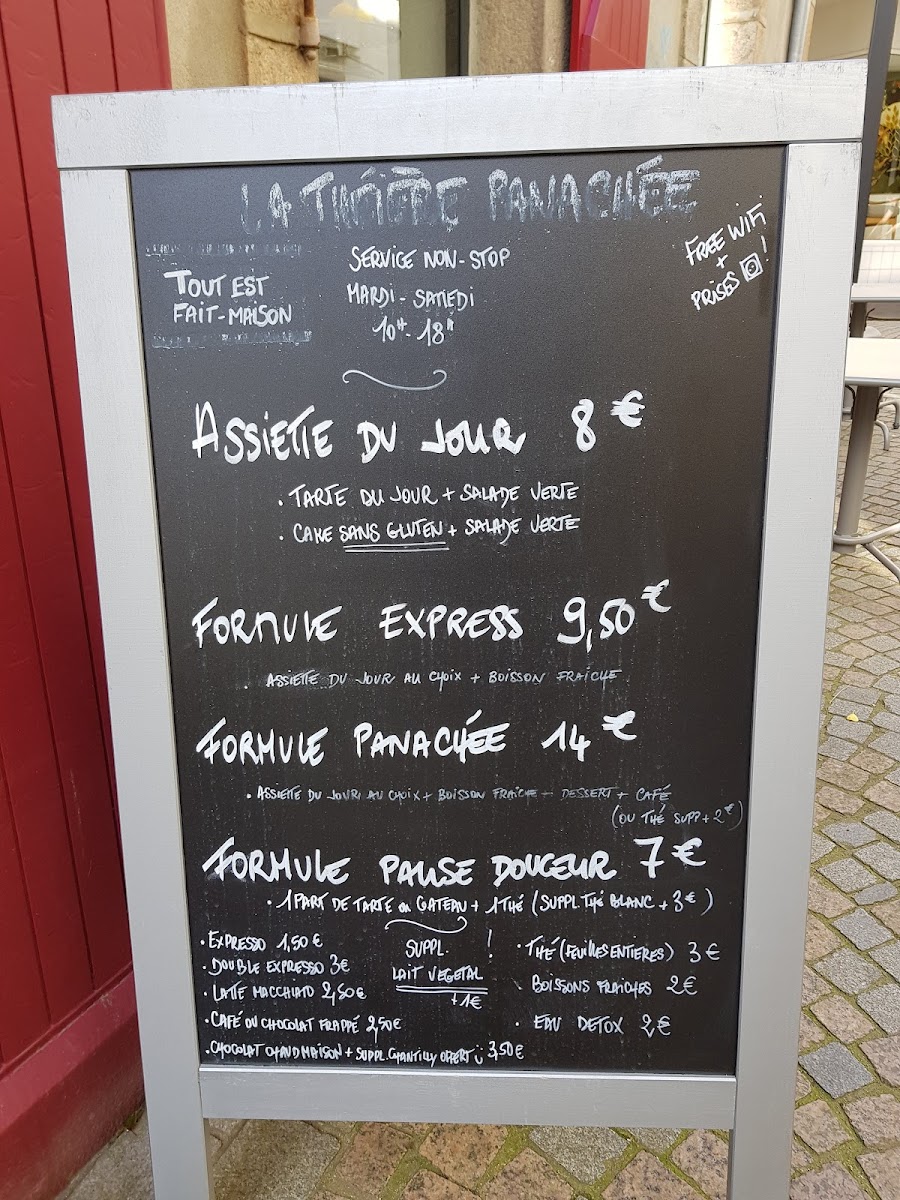 LA THÉIÈRE PANACHÉE
TOUT EST
FAIT-MAISON
SERVICE NON-STOP
MARDI - SAMEDI
10H - 18H
FREE WIFI
+
PRISES !
ASSIETTE DU JOUR 8€
. TARTE DU JOUR + SALADE VERTE
. CAKE SANS GLUTEN + SALADE VERTE
FORMULE EXPRESS 9,50€
. ASSIETTE DU JOUR AU CHOIX + BOISSON FRAÎCHE
FORMULE PANACHÉE 14€
. ASSIETTE DU JOUR AU CHOIX + BOISSON FRAÎCHE + DESSERT + CAFÉ
(OU THÉ SUPP + 2€)
FORMULE PAUSE DOUCEUR 7€
. 1 PART DE TARTE OU GATEAU + 1 THÉ (SUPPL THÉ BLANC + 3€)
. EXPRESSO 1,50€
. DOUBLE EXPRESSO 3€
. LATTE MACCHIATO 2,50€
. CAFÉ OU CHOCOLAT FRAPPÉ 2,50€
. CHOCOLAT CHAUD MAISON + SUPPL. CHANTILLY OFFERT 3,50€
SUPPL. !
LAIT VEGETAL
+1€
. THÉ (FEUILLES ENTIERES) 3€
. BOISSONS FRAICHES 2€
. EAU DETOX 2€